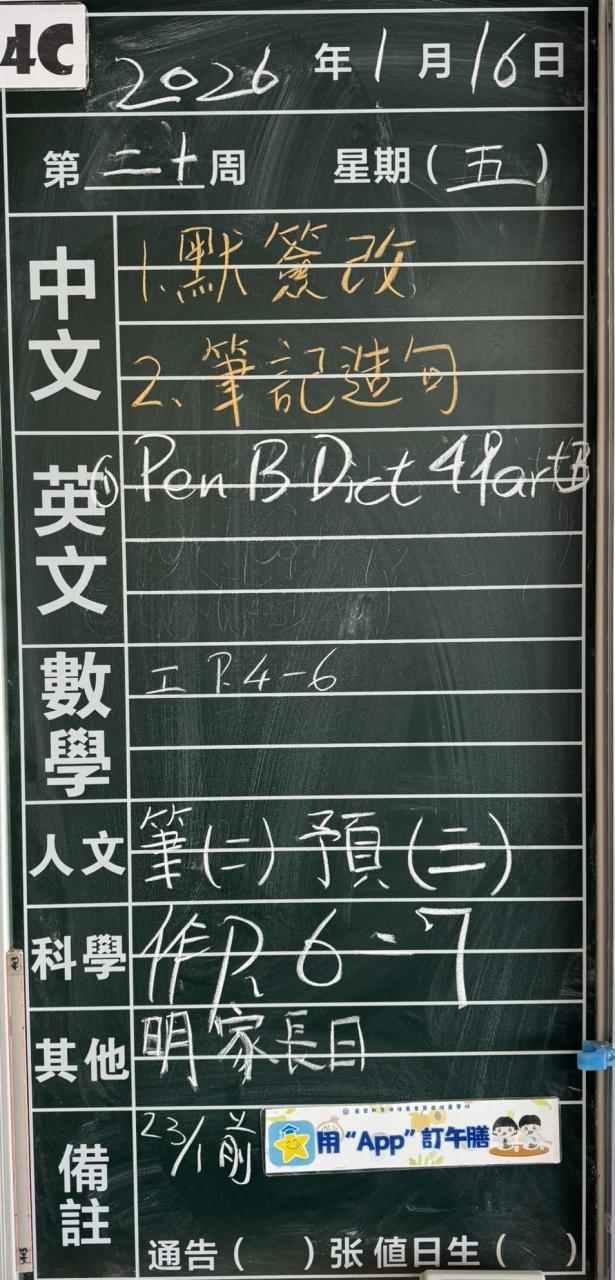 4C
2026年1月16日
第二十周 星期(五)
中文
1.默簽改
2、筆記造句
英文
① Pen B Dict 4 Part B
數學
工 P.4-6
人文
筆(二) 預(三)
科學
作P. 6-7
其他
明家長日
備註
23/1前
用“App”訂午膳
通告( )张 值日生( )